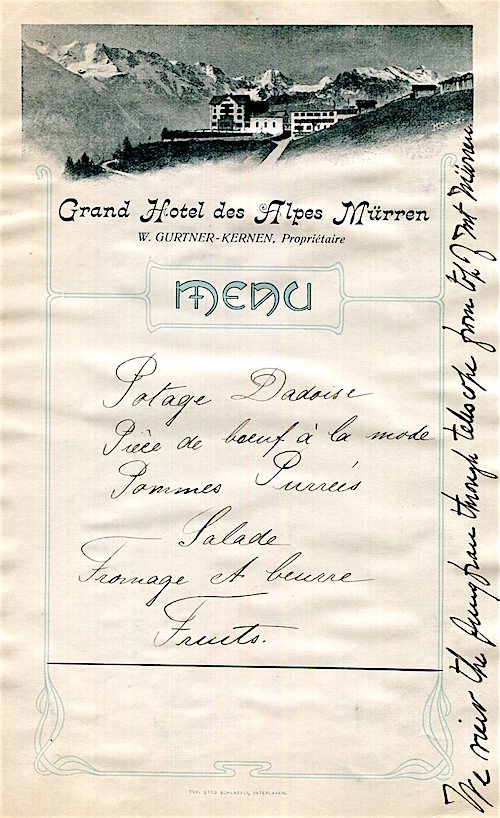 Grand Hotel des Alpes Mürren
W. GURTNER-KERNEN, Propriétaire
MENU
Potage Dadoise
Pièce de boeuf à la mode
Pommes Purrées
Salade
Fromage et beurre
Fruits.
TYP. OTTO SCHLAEFLI, INTERLAKEN.
We view the Jungfrau through telescope from top of Mt Mürren